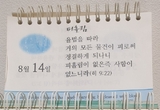 피뿌림
율법을 따라
거의 모든 물건이 피로써
정결하게 되나니
피흘림이 없은즉 사함이
없느니라(히 9:22)
8월 14일